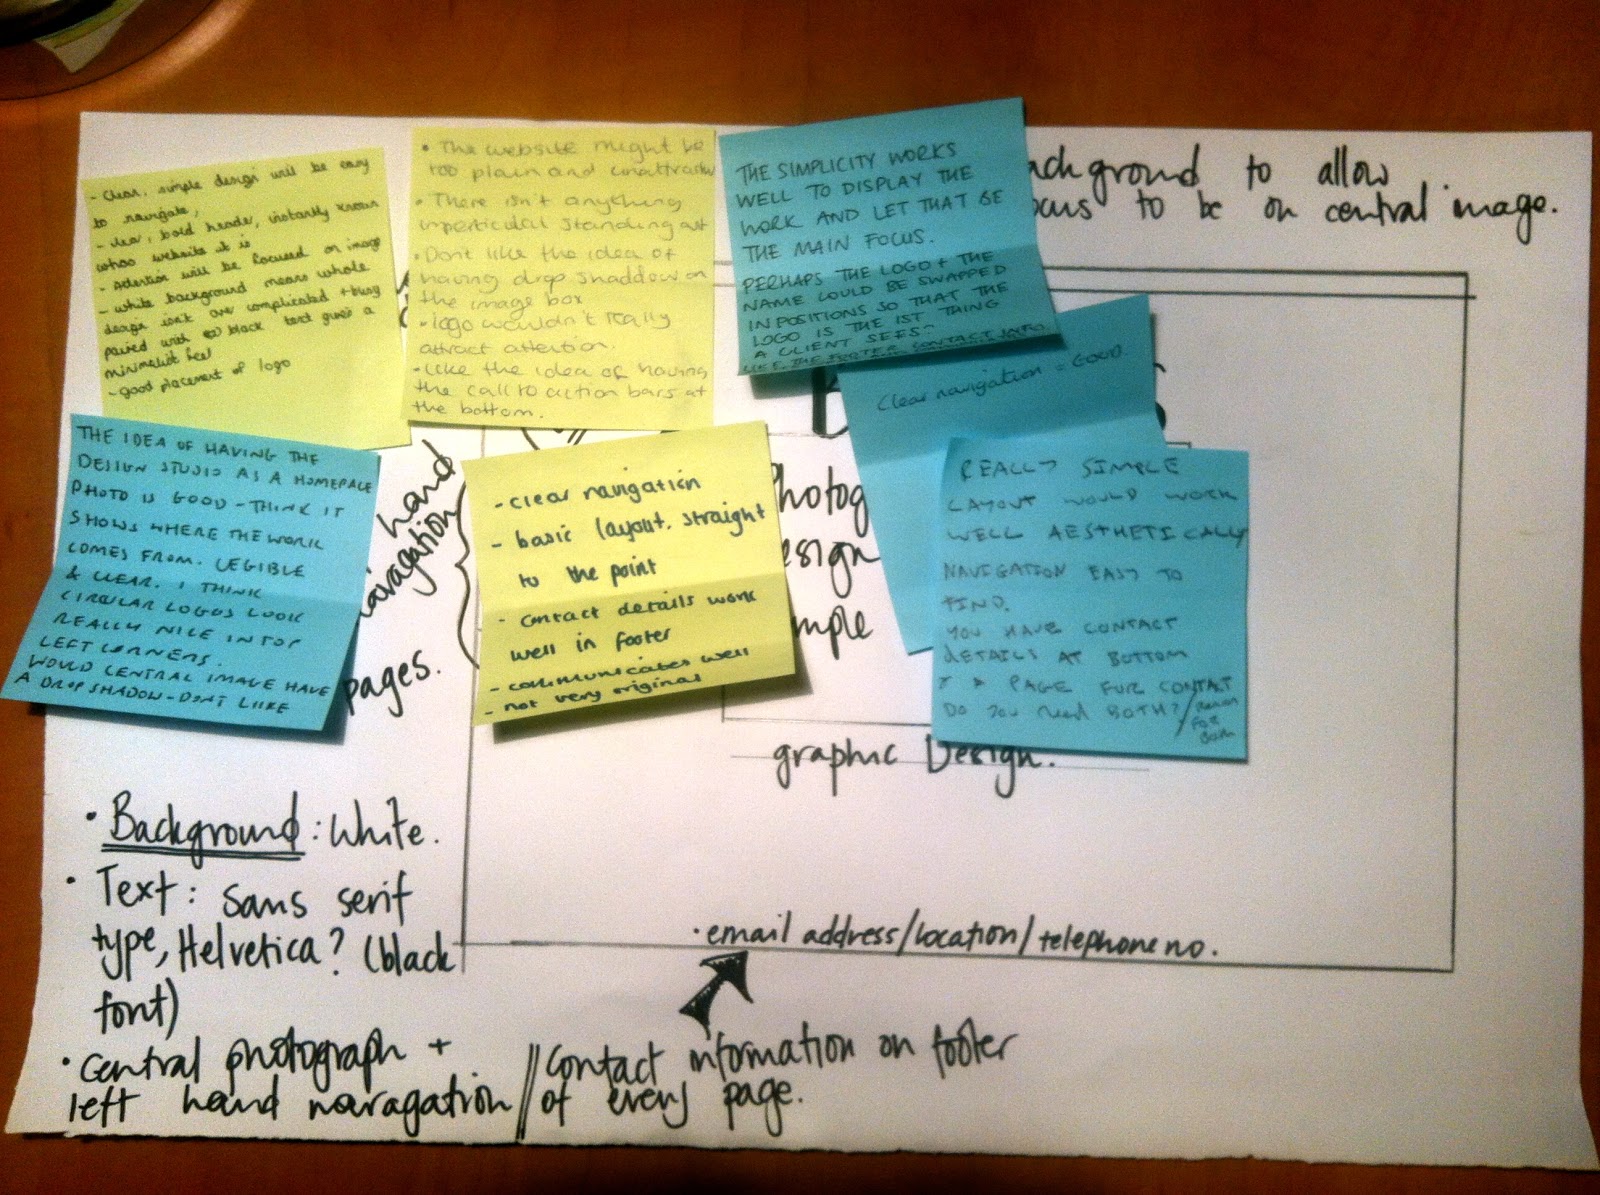 - Clear, simple design will be easy
to navigate,
- clear, bold header, instantly known
whos website it is
- Attention will be focused on image
- white background means whole
design isnt are complicated + busy
paired with black text gives a
minimalist feel
- good placement of logo
• The website might be
too plain and unattractive
• There isn't anything
imperticular standing out
• Dont like the idea of
having drop shaddow on
the image box
• logo wouldn't really
attract attention.
• Like the idea of having
the call to action bars at
the bottom.
THE SIMPLICITY WORKS
WELL TO DISPLAY THE
WORK AND LET THAT BE
THE MAIN FOCUS.
PERHAPS THE LOGO + THE
NAME COULD BE SWAPPED
IN POSITIONS SO THAT THE
LOGO IS THE 1ST THING
A CLIENT SEES
LIKE THE FOOTER CONTACT INFO.
ackground to allow
ocus to be on central image.
Clear navigation = GOOD
THE IDEA OF HAVING THE
DESIGN STUDIO AS A HOMEPAGE
PHOTO IS GOOD - THINK IT
SHOWS WHERE THE WORK
COMES FROM. LEGIBLE
& CLEAR. I THINK
CIRCULAR LOGOS LOOK
REALLY NICE IN TOP
LEFT CORNERS.
WOULD CENTRAL IMAGE HAVE
A DROP SHADOW - DONT LIKE
hand
navagation
pages.
- clear navigation
- basic layout. straight
to the point
- contact details work
well in footer
- communicates well
- not very original
hotog
esign
mple
REALLY SIMPLE
LAYOUT WOULD WORK
WELL AESTHETICALLY
NAVIGATION EASY TO
FIND.
YOU HAVE CONTACT
DETAILS AT BOTTOM
& A PAGE FOR CONTACT
DO YOU NEED BOTH?
graphic Design.
• Background: White.
• Text: Sans serif
type, Helvetica? (black
font)
• Central photograph +
left hand navagation
• email address/location/telephone no.
Contact information on footer
of every page.